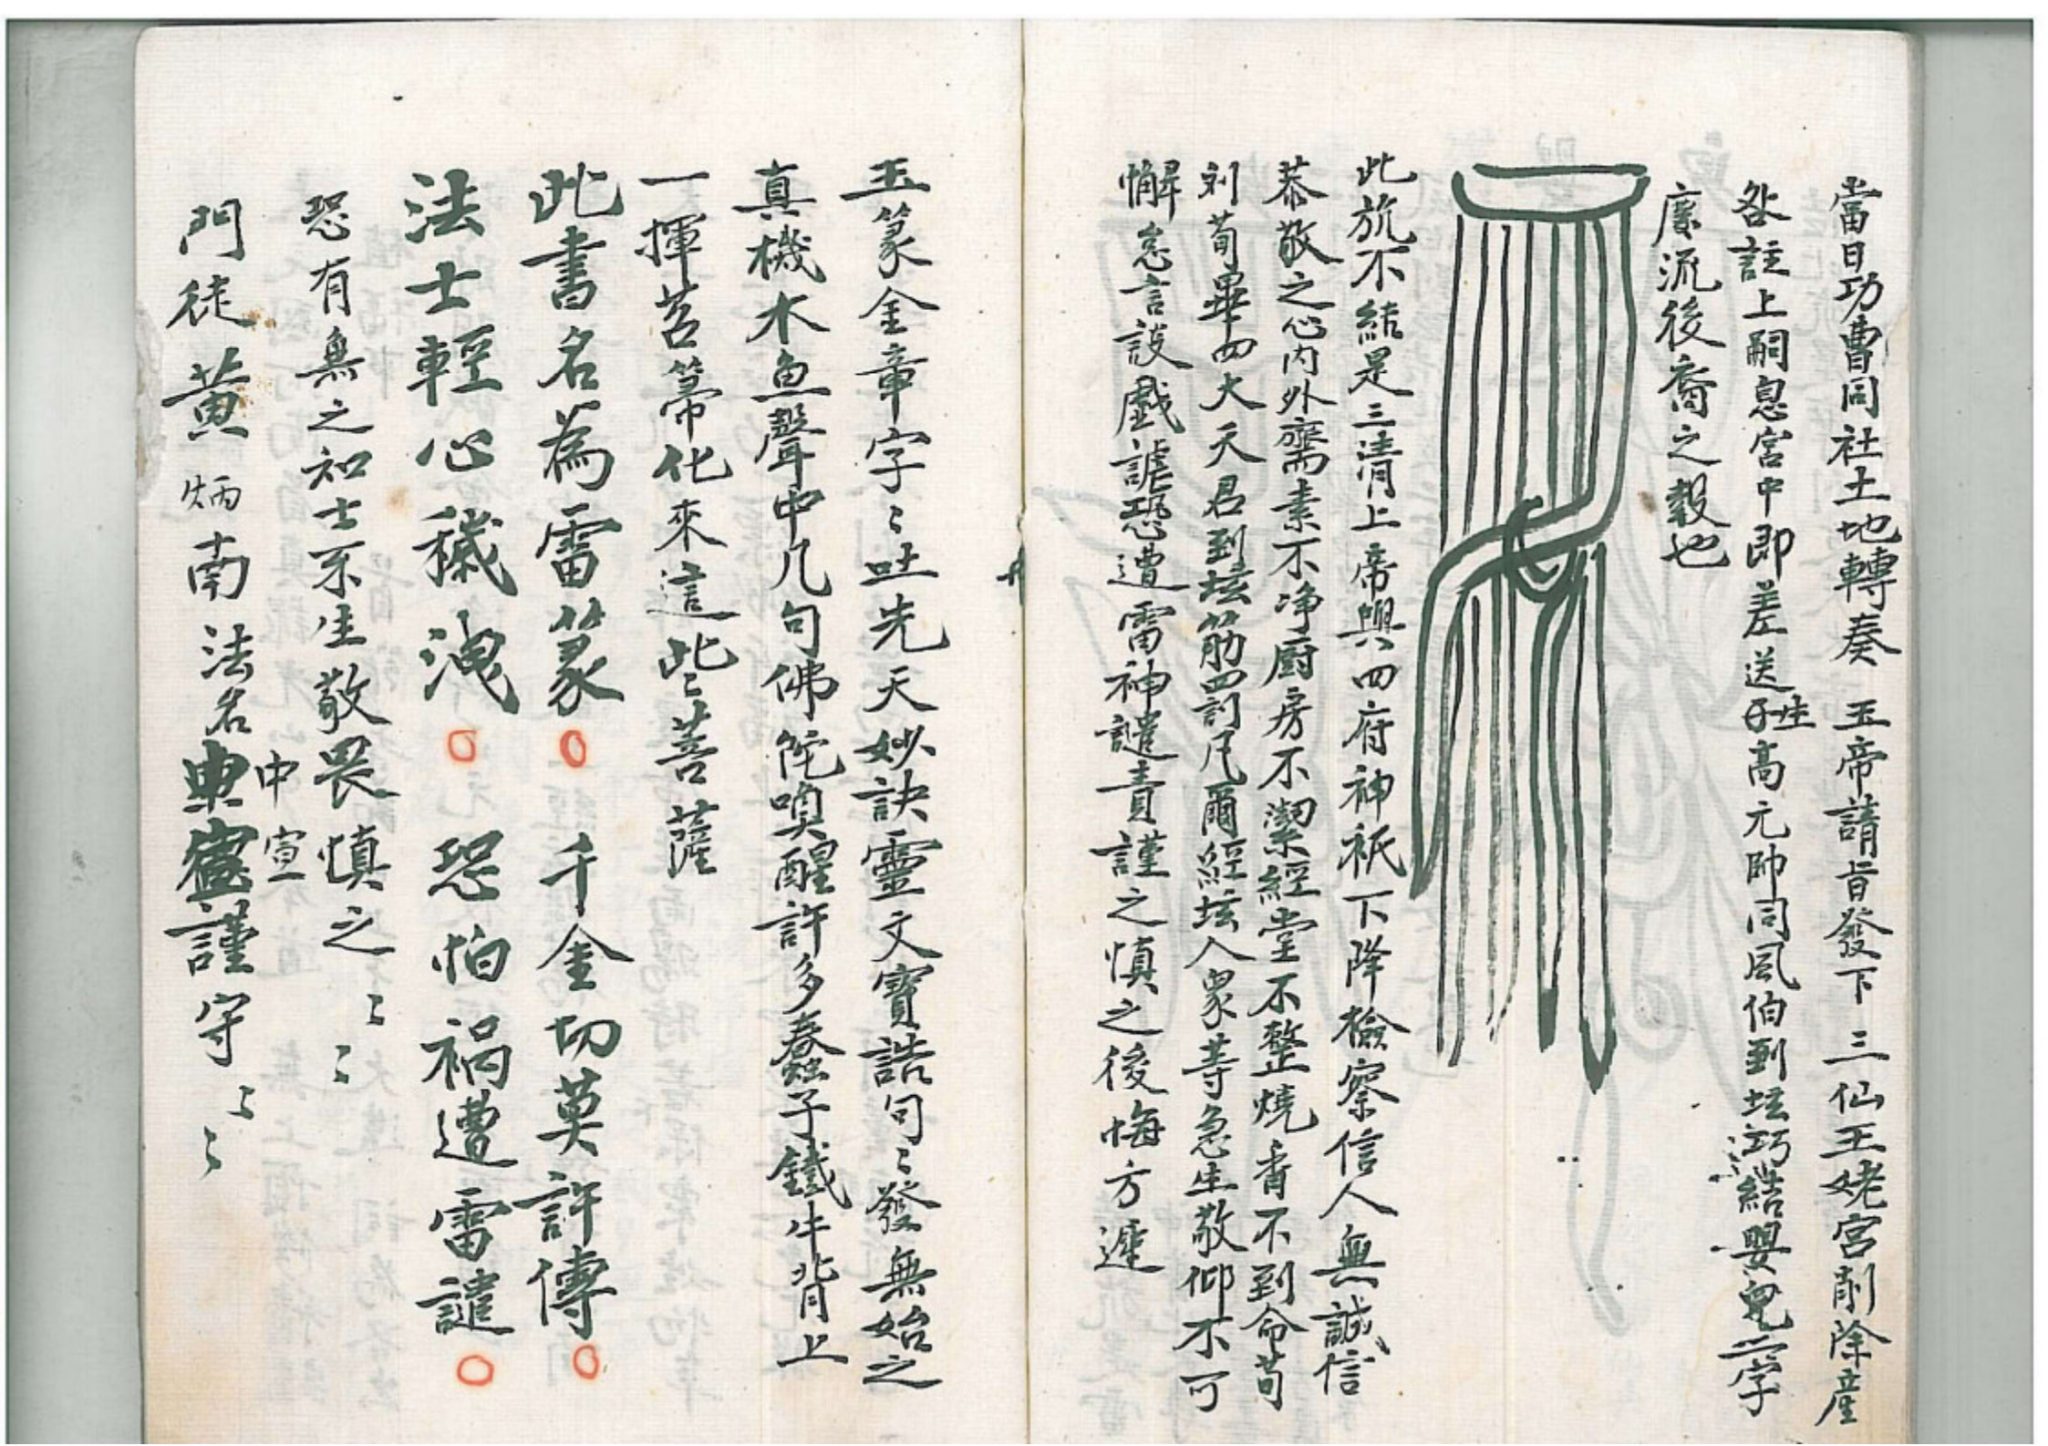 當日功曹同社土地轉奏 玉帝請旨發下三仙王姥宮削除產
咎註上嗣息宮中即差送生子高元帥同風伯到坛巧結嬰兒二字
廣流後裔之穀也
此旒不結是三清上帝與四府神祇下降檢察信人無誠信
恭敬之心内外齋素不净廚房不潔經堂不整燒香不到命苟
刘苟畢四大天君到坛筋四罰凡爾經坛人眾等急生敬仰不可
懈怠言談戲謔恐遭雷神譴責謹之慎之後悔方遲
玉篆金章字〻吐先天妙訣靈文寶誥句〻發無始之
真機木魚聲中几句佛陀喚醒許多蠢子鐵牛背上
一揮笤箒化來這些〻菩薩
此書名為雷篆 千金切莫許傳
法士輕心穢洩 恐怕禍遭雷譴
恐有無之知士不生敬畏慎之〻〻
門徒黄炳南法名典中宣謹守〻〻